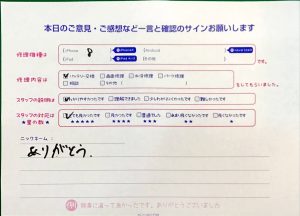 本日のご意見・ご感想など一言と確認のサインお願いします
修理機種は
iPhone 8
Android
iPad
その他
です。
修理内容は
バッテリー交換 画面修理 水没修理 パーツ修理
その他
をしてもらいました。
スタッフの説明は
わかりやすかったです 理解できました 少しわかりにくかったです 難しかったです
スタッフの対応は
★星の数★
とても良かったです 良かったです 普通でした あまり良くなかったです 良くなかったです
★★★★★ ★★★★ ★★★ ★★ ★
ニックネーム:
ありがとう.
綺麗に直って良かったです。ありがとうございました